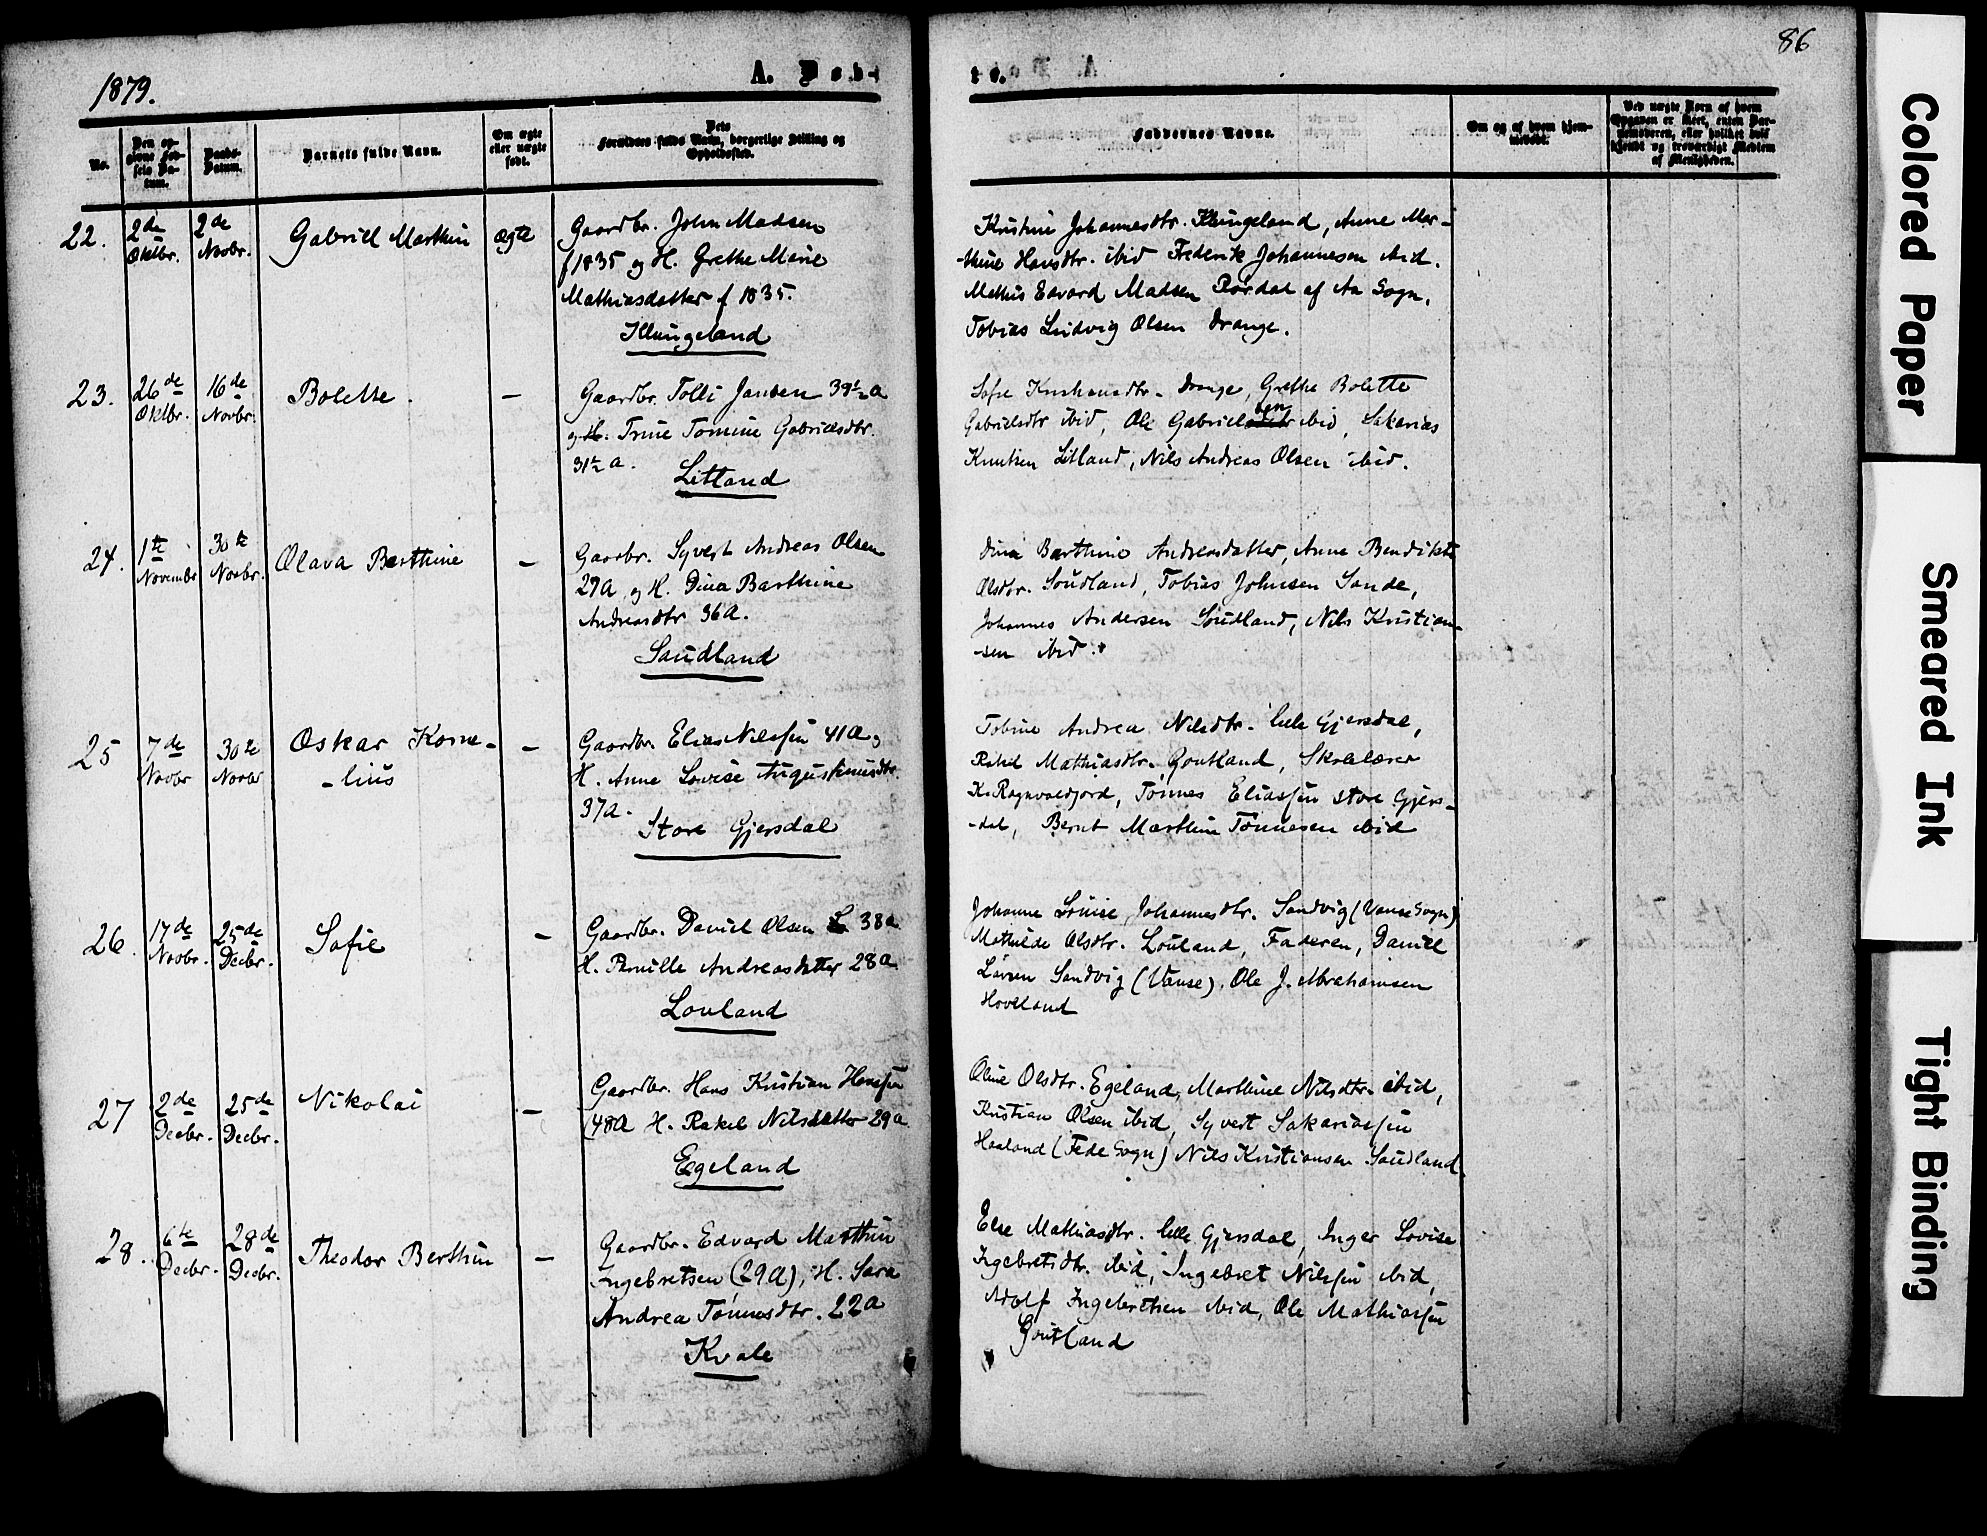 1879.
A. Døb-
te.
86
No.
Den op-
givne Fød-
sels Da-
tum.
Daabs-
Datum.
Barnets fulde Navn.
Om ægte
eller uægte
født.
Dets
Forældres fulde Navn, borgerlige Stilling og
Opholdssted.
Faddernes Navne.
Om og af hvem hjem-
medøbt.
Ved uægte Børn af hvem
Opgaven er skeet, enten Jor-
demoderen, eller hvilket vel-
kjendt og troværdigt Medlem
af Menigheden.
22.
2de
Oktbr.
2de
Novbr.
Gabriel Marthin
ægte
Gaardbr. John Madsen
f 1835 og H. Grethe Marie
Mathiasdatter f 1835.
Klungeland
Kristine Johannesdtr. Klungeland, Anne Mar-
-thine Hansdtr. ibid Frederik Johannesen ibid.
Mathis Edvard Madsen Rørdal af Aa Sogn,
Tobias Ludvig Olsen Drange.
23.
26de
Oktbr.
16de
Novbr.
Bolette.
—
Gaardbr. Tolli Jansen 39½ a
og H. Trine Tomine Gabrielsdtr.
31½ a.
Litland
Sofie Drange, Grethe Bolette
Gabrielsdtr ibid, Ole Gabrielsen ibid, Sakarias
Knutsen Litland, Nils Andreas Olsen ibid.
24.
1te
Novembr
30te
Novbr.
Olava Berthine
—
Gaarbr. Syvert Andreas Olsen
29a og H. Dina Barthine
Andreasdtr 36a.
Saudland
Dina Barthine Andreasdatter, Anne Bendikte
Olsdtr. Soudland, Tobias Johnsen Sande,
Johannes Andersen Soudland, Nils Kristian-
-sen ibid.
25
7de
Novbr
30te
Novbr
Oskar Korne-
-lius
—
Gaardbr. Elias Nilssen 41a og
H. Anne Lovise Augustinusdtr.
37a.
Store Gjersdal
Tobine Andrea Nilsdtr. lille Gjersdal,
Rakel Mathiasdtr. Goutland, Skolelærer
K. Ragnvaldjord, Tønnes Eliassen store Gjers-
-dal, Bernt Marthin Tønnesen ibid
26.
17de
Novbr.
25de
Decbr.
Sofie
—
Gaardbr. Daniel Olsen 38a
H. Pernille Andreasdatter 28a
Louland
Johanne Louise Johannesdtr. Sandvig (Vanse Sogn)
Mathilde Olsdtr. Louland, Faderen, Daniel
Larsen Sandvig (Vanse). Ole J. Abrahamsen
Hovland
27
2de
Decbr.
25de
Decbr.
Nikolai
—
Gaardbr. Hans Kristian Hansen
(48a H. Rakel Nilsdatter 29a
Egeland
Oline Olsdtr. Egeland, Marthine Nilsdtr. ibid,
Kristian Olsen ibid, Syvert Sakariassen
Haaland (Fede Sogn) Nils Kristiansen Saudland.
28.
6te
Decbr.
28de
Decbr.
Theodor Berthin
—
Gaardbr. Edvard Marthin
Ingebretsen (29a), H. Sara
Andrea Tønnesdtr. 22a
Kvale
Else Mathiasdtr. lille Gjersdal, Inger Lovise
Ingebretsdtr. ibid, Ingebret Nilssen ibid,
Adolf Ingebretsen ibid, Ole Mathiassen
Goutland
Colored Paper
Smeared Ink
Tight Binding